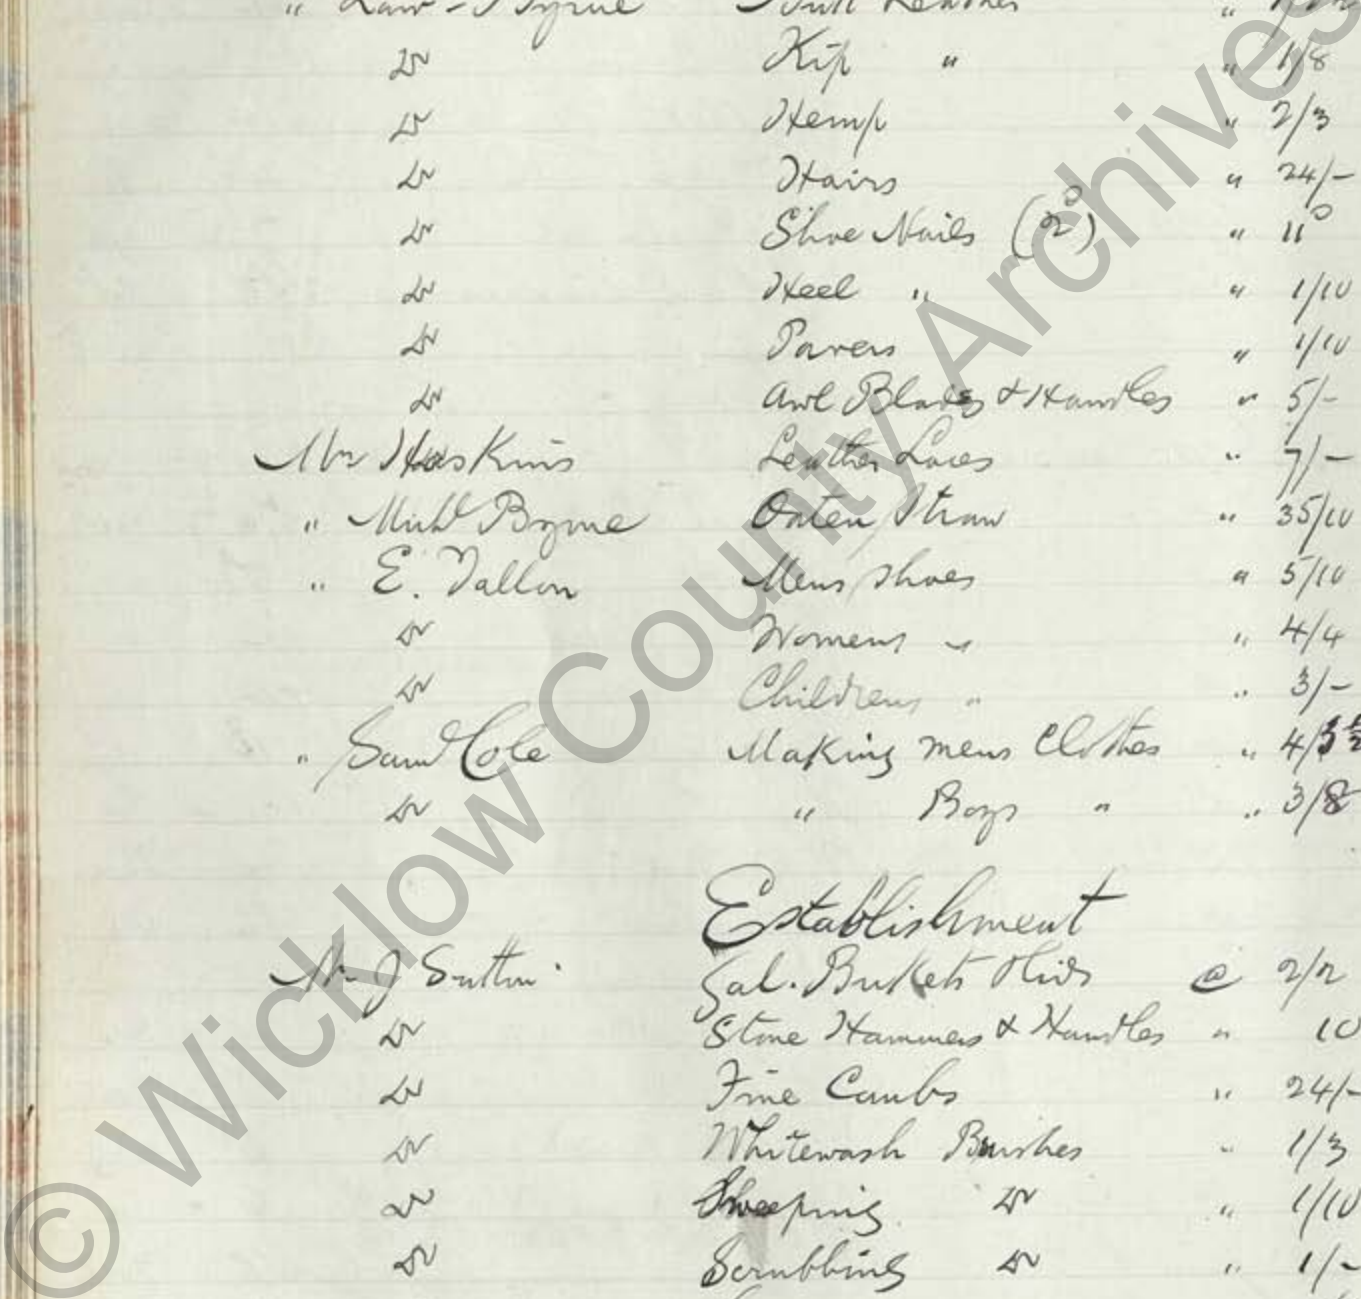 " Law. Byrne Leather "
Do Kip " " 1/8
Do Hemp " 2/3
Do Hairs " 24/-
Do Shoe Nails (2D) " 11D
Do Heel " " 1/10
Do Pavers " 1/10
Do Awl Blades & Handles " 5/-
Mr Hoskins Leather Laces " 7/-
" Michl Byrne Oaten Straw " 35/10
" E. Fallon Mens Shoes " 5/10
Do Womens " " 4/4
Do Childrens " " 3/-
" Saml Cole Making mens Clothes " 4/3½
Do " Boys " " 3/8
Establishment
Mr J Sutton Gal. Buckets & lids @ 2/2
Do Stone Hammers & Handles " 10
Do Fine Combs " 24/-
Do Whitewash Brushes " 1/3
Do Sweeping Do " 1/10
Do Scrubbing Do " 1/-
© Wicklow County Archives